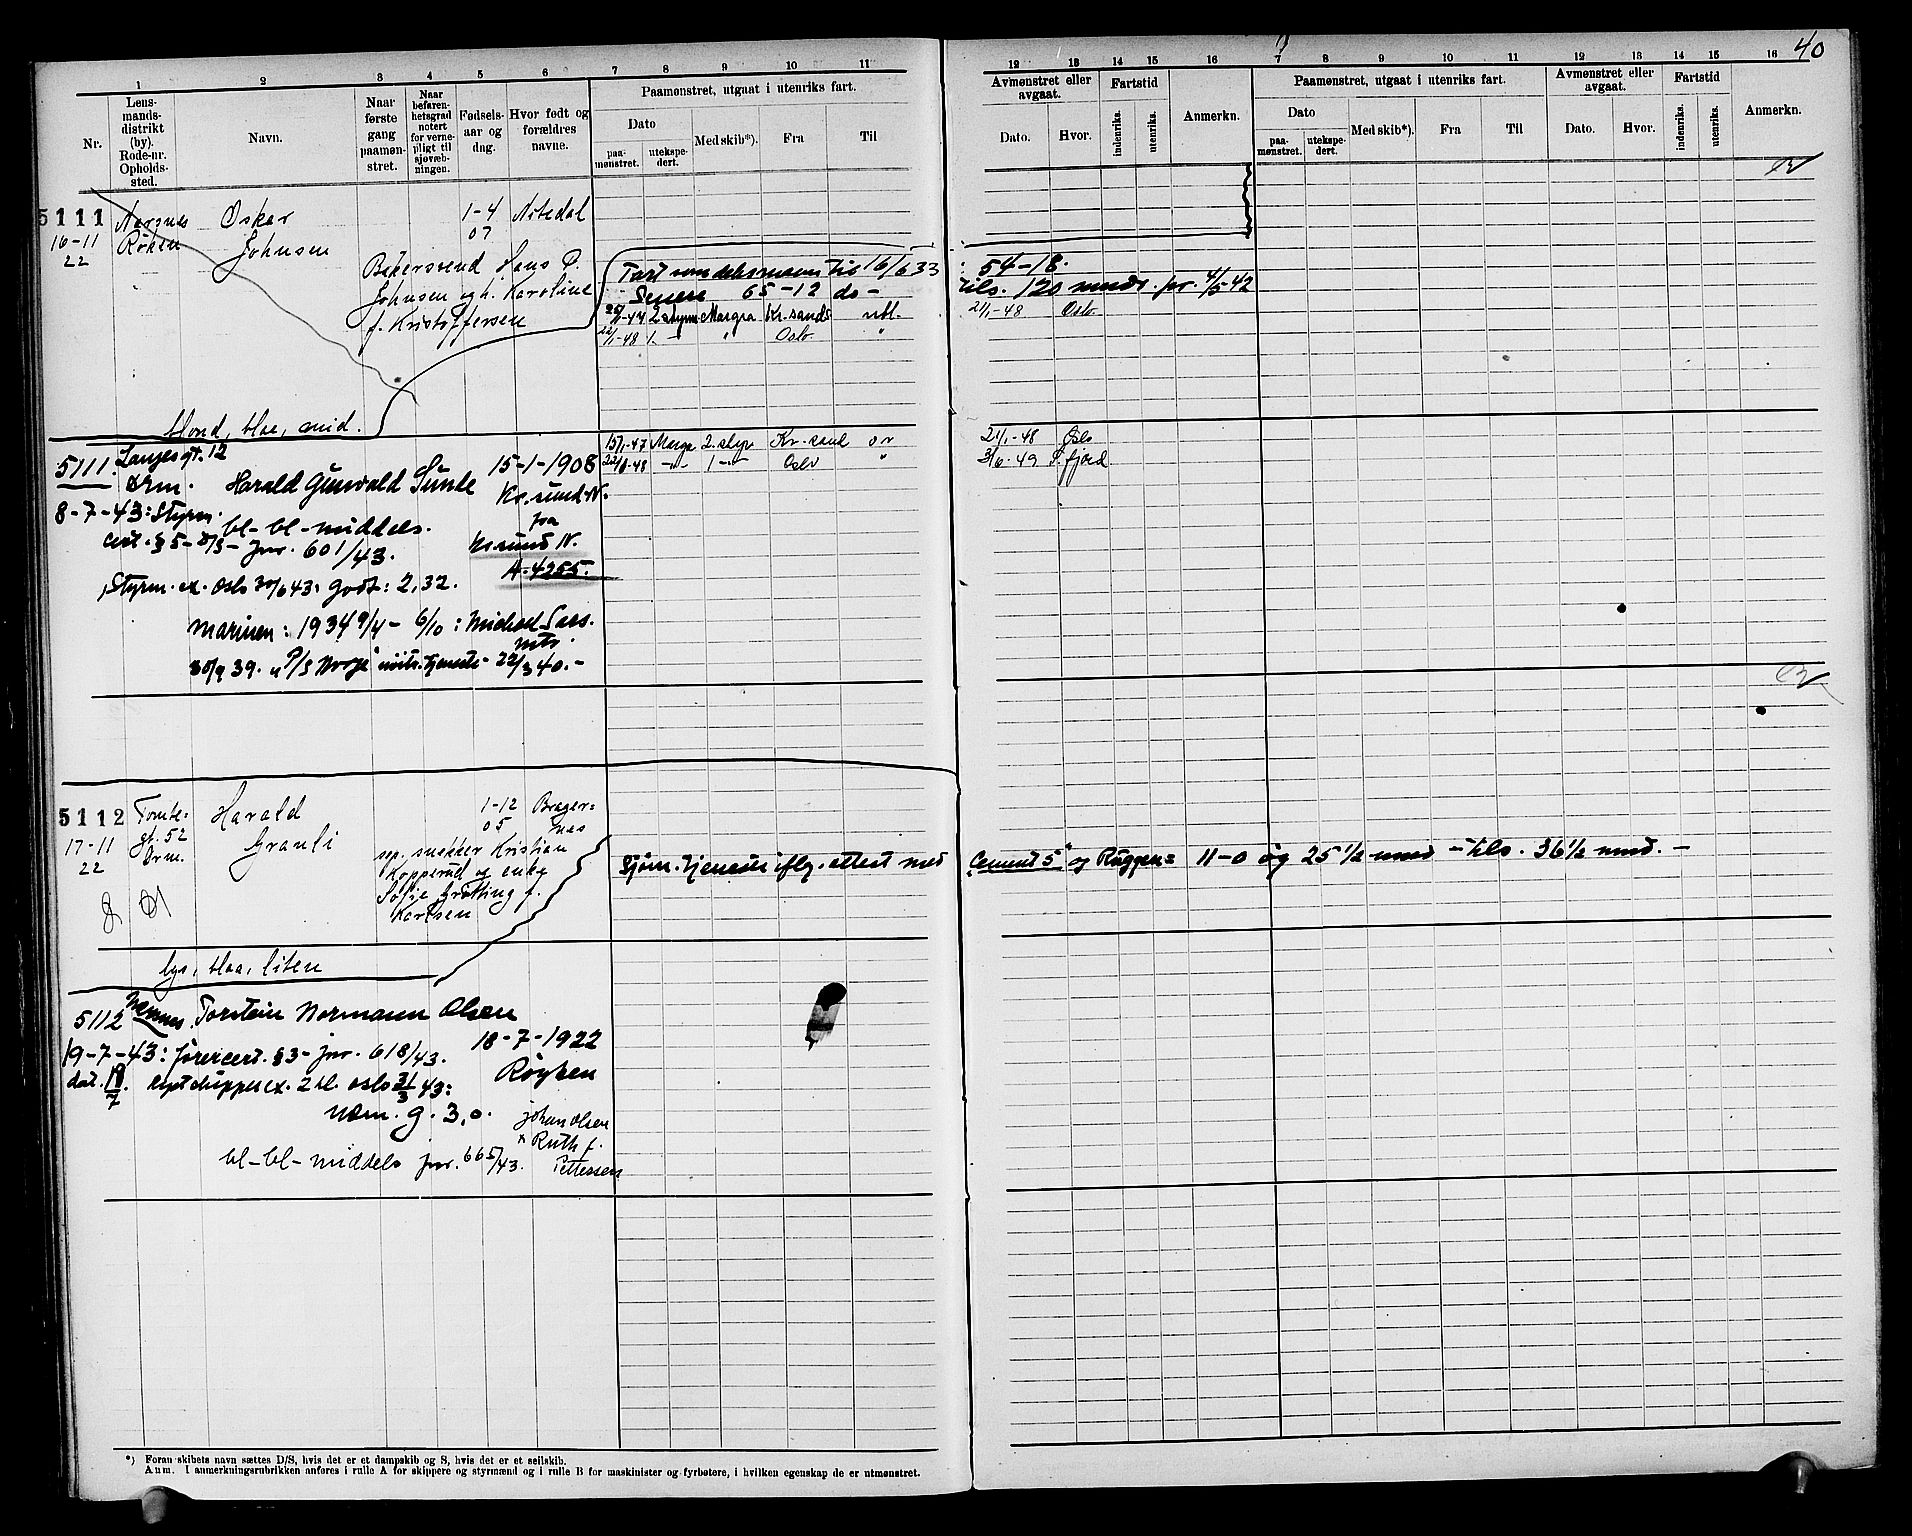 40
1 2 3 4 5 6 7 8 9 10 11
12 13 14 15 16 7 8 9 10 11 12 13 14 15 16
Nr.
Lens-
mands-
distrikt
(by).
Rode-nr.
Opholds-
sted.
Navn.
Naar
første
gang
paamøn-
stret.
Naar
befaren-
hetsgrad
notert
for verne-
pligt til
sjøvæb-
ningen.
Fødsels-
aar og
dag.
Hvor født og
forældres
navne.
Paamønstret, utgaat i utenriks fart.
Dato
paa-
mønstret.
utekspe-
dert.
Med skib*).
Fra
Til
Avmønstret eller
avgaat.
Dato.
Hvor.
Fartstid
indenriks.
utenriks.
Anmerkn.
Paamønstret, utgaat i utenriks fart.
Dato
paa-
mønstret.
utekspe-
dert.
Med skib*).
Fra
Til
Avmønstret eller
avgaat.
Dato.
Hvor.
Fartstid
indenriks.
utenriks.
Anmerkn.
5111 Oskar 1-4 Nitedal
16-11 Røken Johnsen 07
22
Hans P.
Johnsen og h. Karoline
f. Kristoffersen
Fart som deksmann til 16/6 33 54-18.
Senere 65-12 do- tils. 120 mndr. pr. 4/5-42
-47 2 styrm Margra Kr.sands utl. 21/1-48 Oslo
22/1-48 1 - " Oslo. "
blond, blaa, mid.
5111 12 Harald Gunvald Sunde 15-1-1908
Drm. Kr.sund N.
15/1-47 Marga 2. styr Kr.sand 21/1-48 Oslo
22/1-48 -"- 1-"- Oslo " 3/6-49 S.fjord
8-7-43: Styrm.
bl-bl-middels. fra
cert. §5- jnr. 601/43. Kr.sund N.
A-4255.
Styrm. ex. Oslo 30/6 43: godt: 2,32.
marinen: 1934 9/4 - 6/10: Michael Sars.
30/9 39. "P/S Norge" nøitr. tjeneste - 22/3 40.-
5112 Tomte- Harald 1-12 Brager-
17-11 gt. 52 Granli 05 nes
22 Drm.
sep. snekker Kristian
Kopperud og enke
Sofie Grøtting f.
Karlsen
Sjøm. tjeneste iflg. attest med "Cement 5" og Ruggen= 11-0 og 25 1/2 mnd - tils. 36 1/2 mnd. -
lys, blaa, liten
5112 Nærsnes. Torstein Normann Olsen
18-7-1922
19-7-43: førercert. §3- jnr. 618/43.
Røyken
dat. 17/7. kystskipperex. 2 kl. Oslo 31/3 43:
g. 3,0.
Johan Olsen
x Ruth f.
Pettersen
bl-bl-middels jnr. 665/43.
*) Foran skibets navn sættes D/S, hvis det er et dampskib og S, hvis det er et seilskib.
Anm. I anmerkningsrubrikken anføres i rulle A for skippere og styrmænd og i rulle B for maskinister og fyrbøtere, i hvilken egenskap de er utmønstret.